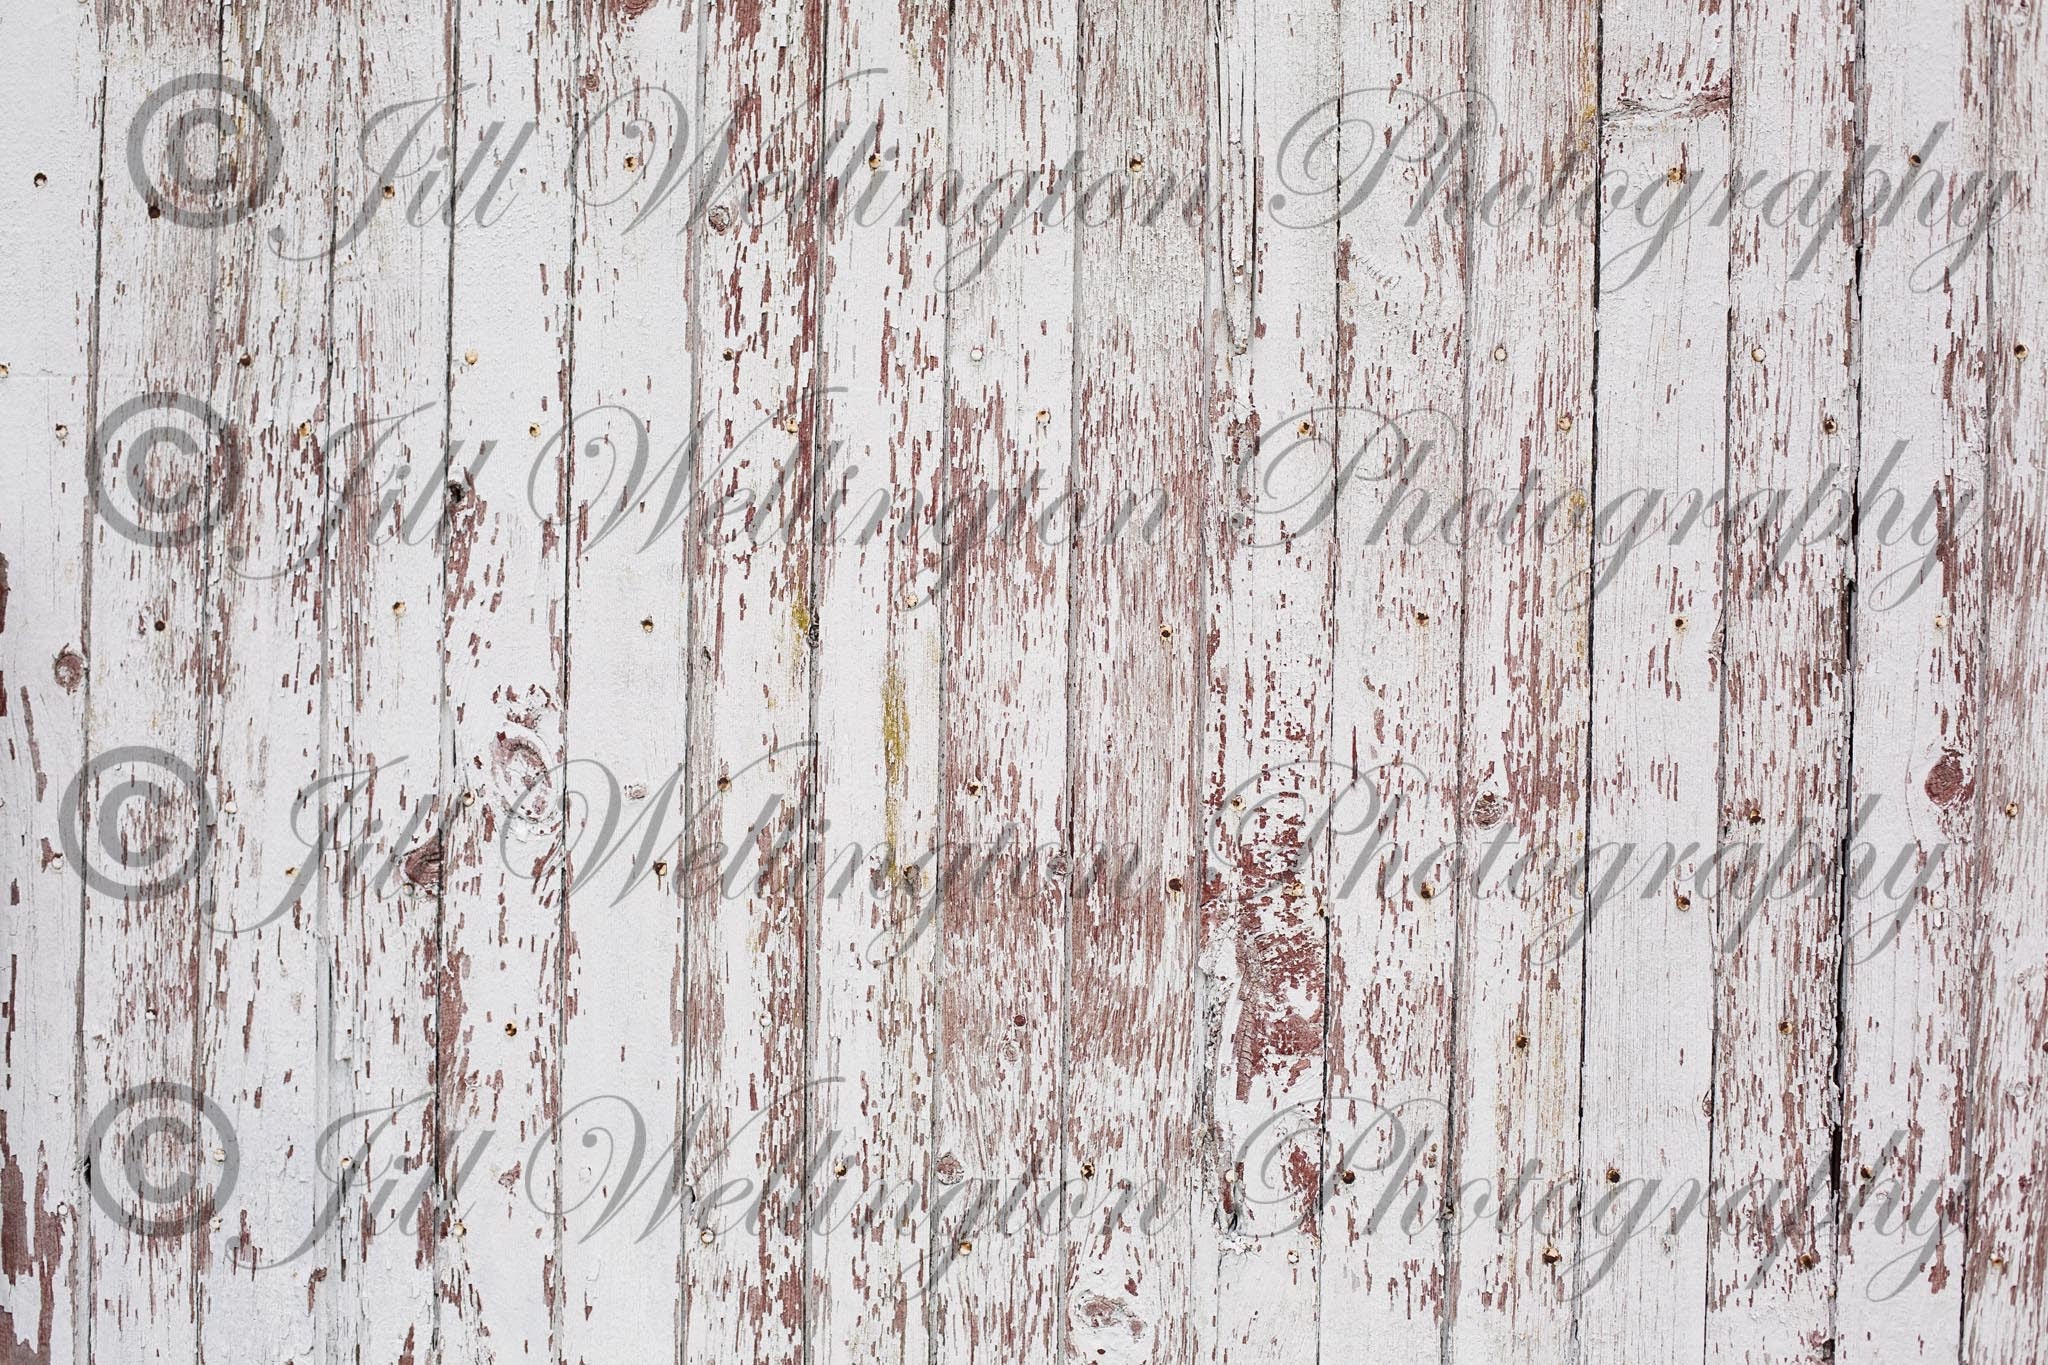 © Jill Wellington Photography
© Jill Wellington Photography
© Jill Wellington Photography
© Jill Wellington Photography